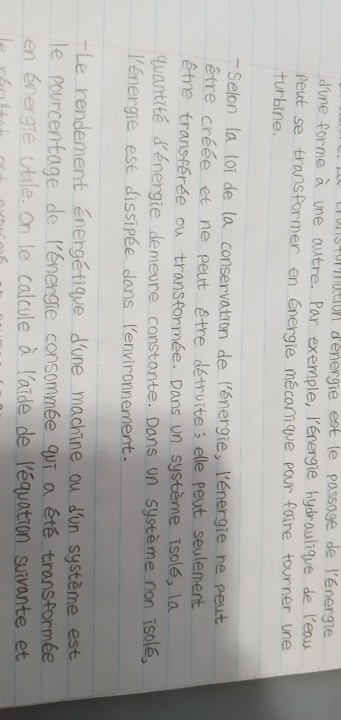 transformation d'énergie est le passage de l'énergie
d'une forme à une autre. Par exemple, l'énergie hydraulique de l'eau
peut se transformer en énergie mécanique pour faire tourner une
turbine.
- Selon la loi de la conservation de l'énergie, l'énergie ne peut
être créée et ne peut être détruite; elle peut seulement
être transférée ou transformée. Dans un système isolé, la
quantité d'énergie demeure constante. Dans un système non isolé,
l'énergie est dissipée dans l'environnement.
- Le rendement énergétique d'une machine ou d'un système est
le pourcentage de l'énergie consommée qui a été transformée
en énergie utile. On le calcule à l'aide de l'équation suivante et
le résultat est